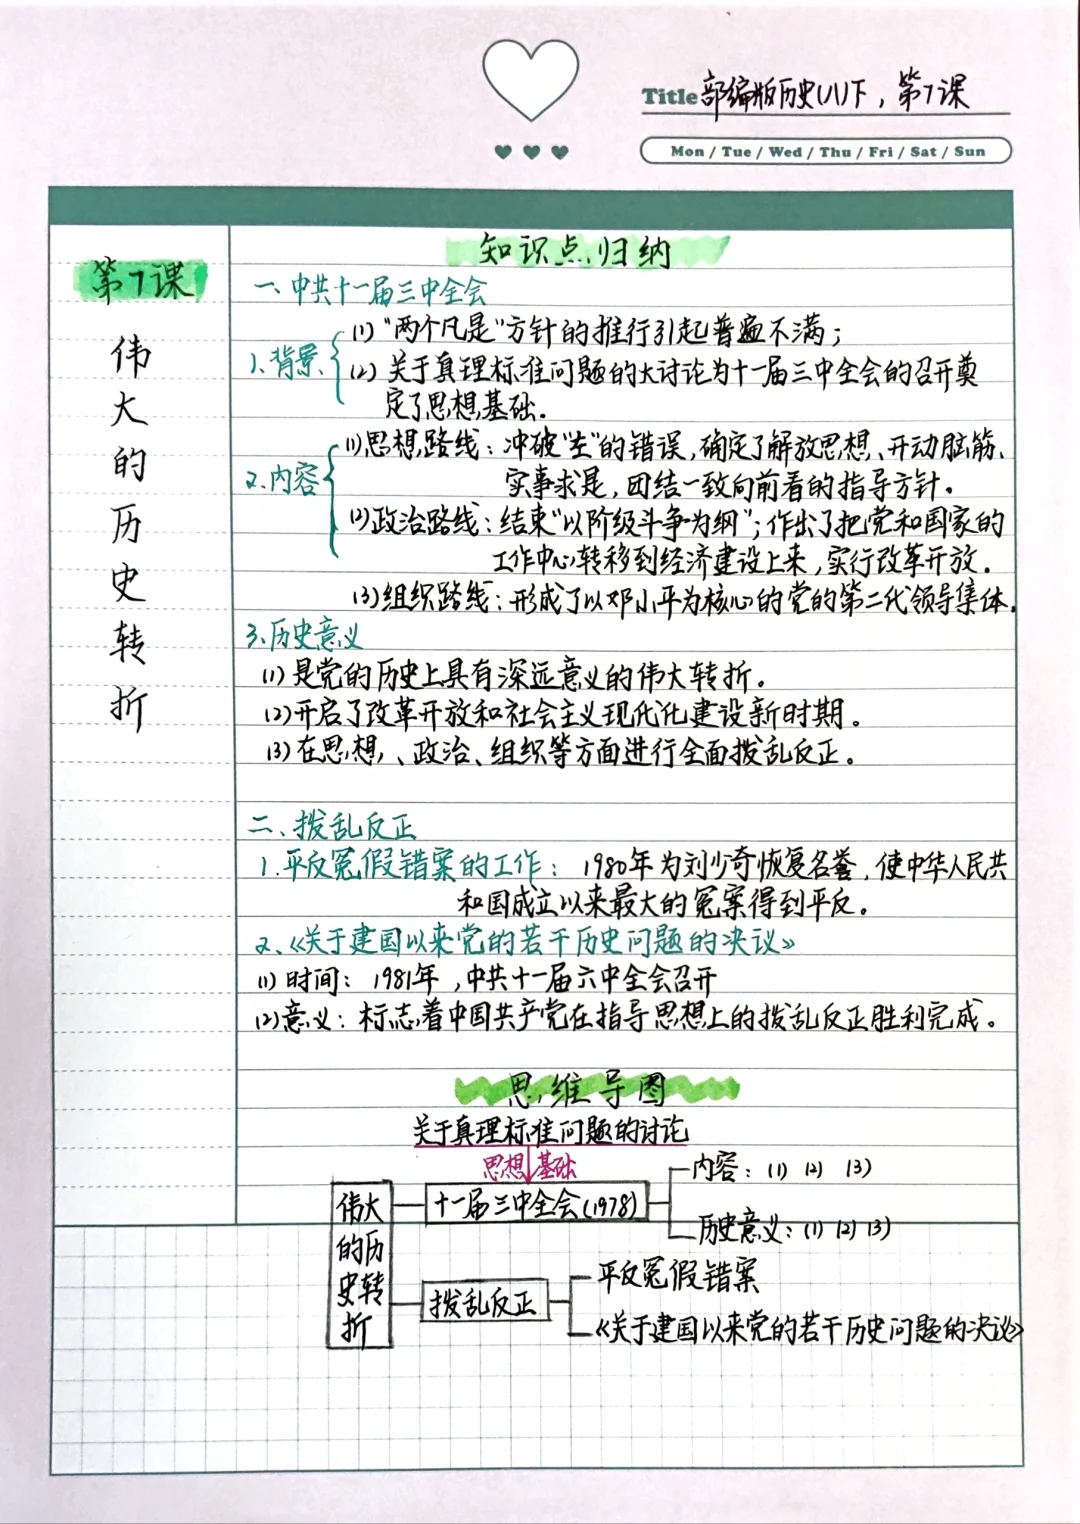 Title 部编版历史(八)下，第7课
Mon / Tue / Wed / Thu / Fri / Sat / Sun
第7课
伟大的历史转折
知识点归纳
一、中共十一届三中全会
1.背景
(1)“两个凡是”方针的推行引起普遍不满；
(2)关于真理标准问题的大讨论为十一届三中全会的召开奠
定了思想基础.
2.内容
(1)思想路线：冲破“左”的错误,确定了解放思想、开动脑筋、
实事求是，团结一致向前看的指导方针。
(2)政治路线：结束“以阶级斗争为纲”；作出了把党和国家的
工作中心转移到经济建设上来，实行改革开放.
(3)组织路线：形成了以邓小平为核心的党的第二代领导集体.
3.历史意义
(1)是党的历史上具有深远意义的伟大转折。
(2)开启了改革开放和社会主义现代化建设新时期。
(3)在思想、政治、组织等方面进行全面拨乱反正。
二、拨乱反正
1.平反冤假错案的工作：1980年为刘少奇恢复名誉,使中华人民共
和国成立以来最大的冤案得到平反。
2、《关于建国以来党的若干历史问题的决议》
(1)时间：1981年,中共十一届六中全会召开
(2)意义：标志着中国共产党在指导思想上的拨乱反正胜利完成。
思维导图
关于真理标准问题的讨论
思想基础
内容：(1) (2) (3)
十一届三中全会(1978)
历史意义：(1) (2) (3)
伟大的历史转折
平反冤假错案
拨乱反正
《关于建国以来党的若干历史问题的决议》